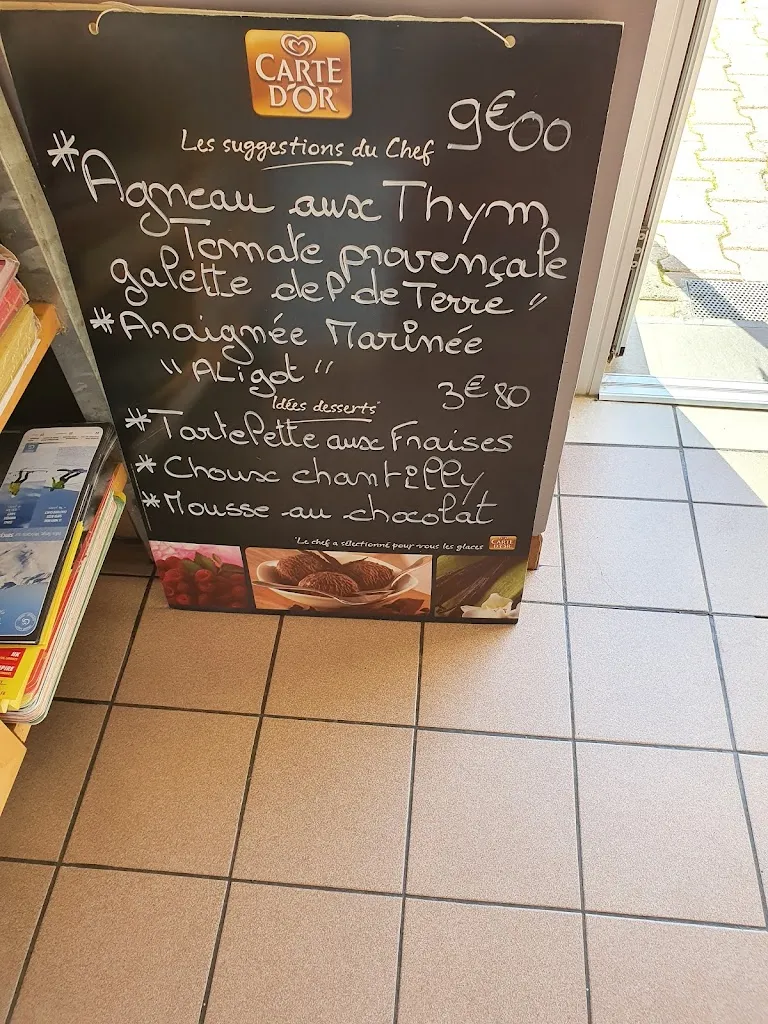 CARTE
D'OR
9€00
Les suggestions du Chef
*Agneau aux Thym
Tomate provençale
galette de P. de Terre "
*Araignée Marinée
"ALigot"
3€80
Idées desserts
*Tartelette aux Fraises
*Choux chantilly
*Mousse au chocolat
*Le chef a sélectionné pour vous les glaces CARTE D'OR